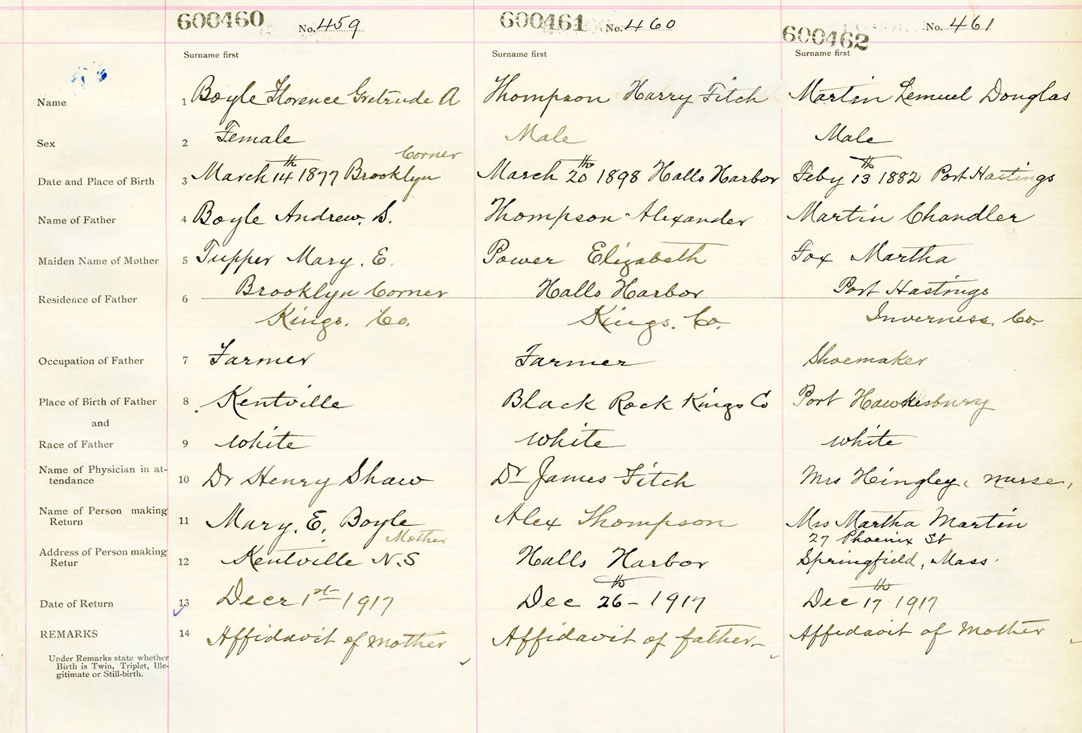 600460 No. 459 600461 No. 460 600462 No. 461
Surname first Surname first Surname first
Name 1 Boyle Florence Gretrude A Thompson Harry Fitch Martin Lemuel Douglas
Sex 2 Female Male Male
Corner
Date and Place of Birth 3 March 14th 1877 Brooklyn March 20th 1898 Halls Harbor Feby 13th 1882 Port Hastings
Name of Father 4 Boyle Andrew. S. Thompson Alexander Martin Chandler
Maiden Name of Mother 5 Tupper Mary. E. Power Elizabeth Fox Martha
Residence of Father 6 Brooklyn Corner Halls Harbor Port Hastings
Kings. Co. Kings. Co. Inverness. Co.
Occupation of Father 7 Farmer Farmer Shoemaker
Place of Birth of Father 8 Kentville Black Rock Kings Co Port Hawkesbury
and
Race of Father 9 White White White
Name of Physician in at-
tendance 10 Dr Henry Shaw Dr James Fitch Mrs Hingley, nurse,
Name of Person making
Return 11 Mary. E. Boyle Alex Thompson Mrs Martha Martin
Mother 27 Phoenix St
Address of Person making
Retur 12 Kentville N.S Halls Harbor Springfield, Mass.
Date of Return 13 Decr 1st 1917 Dec 26th - 1917 Dec 17th 1917
REMARKS 14 Affidavit of mother Affidavit of father Affidavit of Mother
Under Remarks state whether
Birth is Twin, Triplet, Ille-
gitimate or Still-birth.